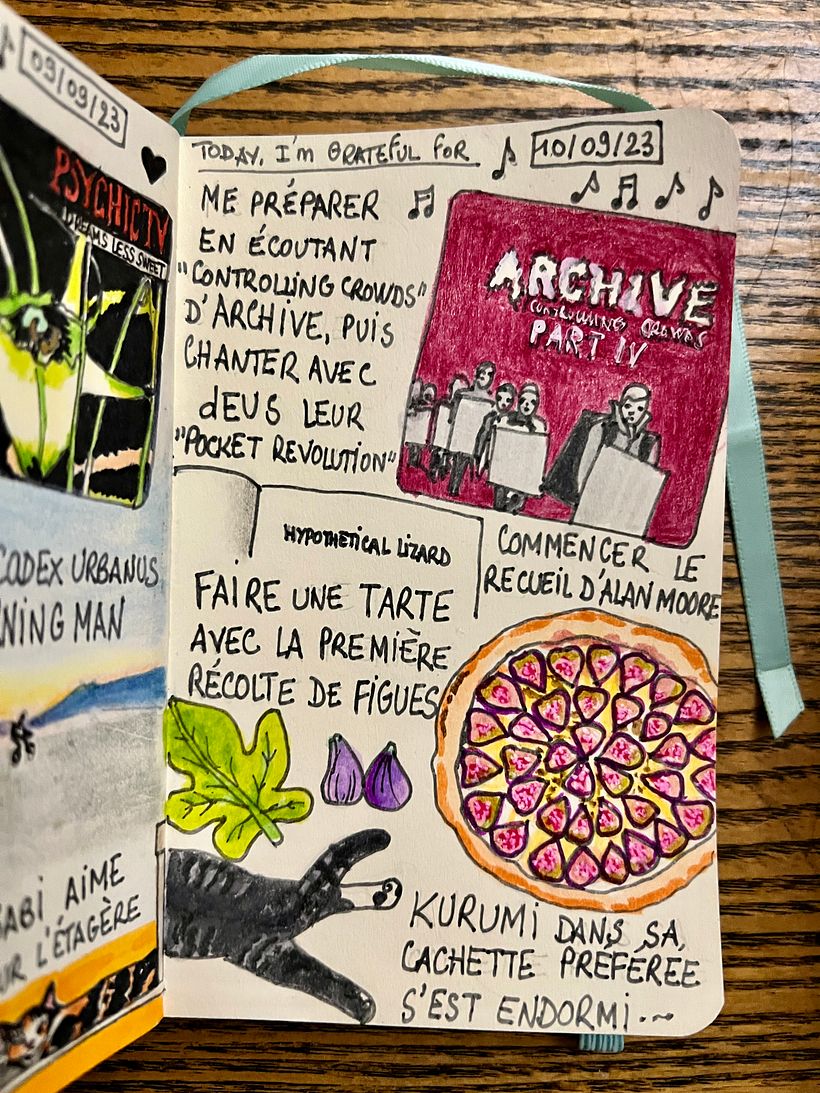 09/09/23
PSYCHIC TV
DREAMS LESS SWEET
CODEX URBANUS
NING MAN
ABI AIME
UR L'ÉTAGÈRE
TODAY, I'm GRATEFUL FOR
10/09/23
ME PRÉPARER
EN ÉCOUTANT
"CONTROLLING CROWDS"
D'ARCHIVE, PUIS
CHANTER AVEC
dEUS LEUR
"POCKET REVOLUTION"
ARCHIVE
CONTROLLING CROWDS
PART IV
HYPOTHETICAL LIZARD
COMMENCER LE
RECUEIL D'ALAN MOORE
FAIRE UNE TARTE
AVEC LA PREMIÈRE
RÉCOLTE DE FIGUES
KURUMI DANS SA
CACHETTE PRÉFÉRÉE
S'EST ENDORMI...